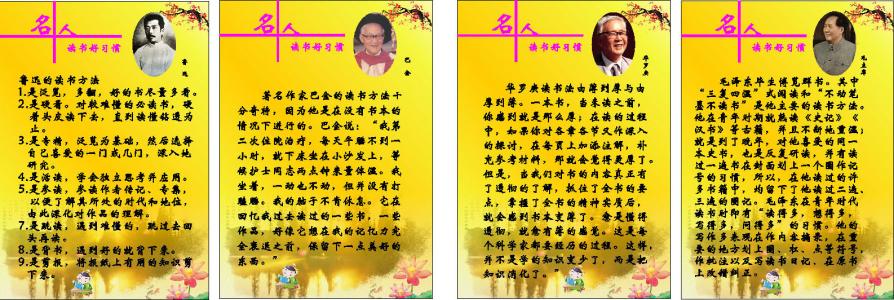 名人
读书好习惯
鲁迅
鲁迅的读书方法
1.是泛览，多翻，好的书尽量多看。
2.是硬看。对较难懂的必读书，硬
着头皮读下去，直到读懂钻透为
止。
3.是专精，泛览为基础，然后选择
自己喜爱的一门或几门，深入地
研究。
4.是活读，学会独立思考并应用。
5.是参读，参读作者传记、专集，
以便了解其所处的时代和地位，
由此深化对作品的理解。
7.是跳读，遇到难懂的，跳过去回
头再读。
8.是背书，遇到好的就背下来。
9.是剪报，将报纸上有用的知识剪
下来。
名人
读书好习惯
巴金
著名作家巴金的读书方法十
分奇特，因为他是在没有书本的
情况下进行的。巴金说：“我第
二次住院治疗，每天午睡不到一
小时，就下床坐在小沙发上，等
候护士同志两点钟来量体温。我
坐着，一动也不动，但并没有打
瞌睡。我的脑子不肯休息。它在
回忆我过去读过的一些书，一些
作品，好像它想在我的记忆力完
全衰退之前，保留下一点美好的
东西。”
名人
读书好习惯
华罗庚
华罗庚读书法由薄到厚与由
厚到薄。一本书，当未读之前，
你感到就是那么厚；在读的过程
中，如果你对各章各节又作深入
的探讨，在每页上加添注解，补
充参考材料，那就会觉得更厚了。
但是，当我们对书的内容真正有
了透彻的了解，抓住了全书的要
点，掌握了全书的精神实质后，
就会感到书本变薄了。愈是懂得
透彻，就愈有薄的感觉。这是每
个科学家都要经历的过程。这样，
并不是学的知识变少了，而是把
知识消化了。”
名人
读书好习惯
毛主席
毛泽东毕生博览群书。其中
“三复四温”式阅读和“不动笔
墨不读书”是他主要的读书方法。
他在青年时期就熟读《史记》《
汉书》等古籍，并且不断地重温；
就是到了晚年，对他喜爱的同一
本史书，也是反复研读，并有读
过一遍书在封面划上一个圈作记
号的习惯，所以，在他读过的许
多书籍中，均留下了他读过二遍、
三遍的圈记。毛泽东在青年时代
读书时即有“读得多，想得多，
写得多，问得多”的习惯。他的
写得多表现在作内容摘录，在重
要的地方划上圈、杠、点等符号，
作批注以及写读书日记、在原书
上改错纠正。